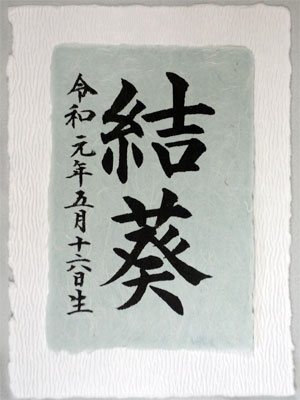 結葵
令和元年五月十六日生